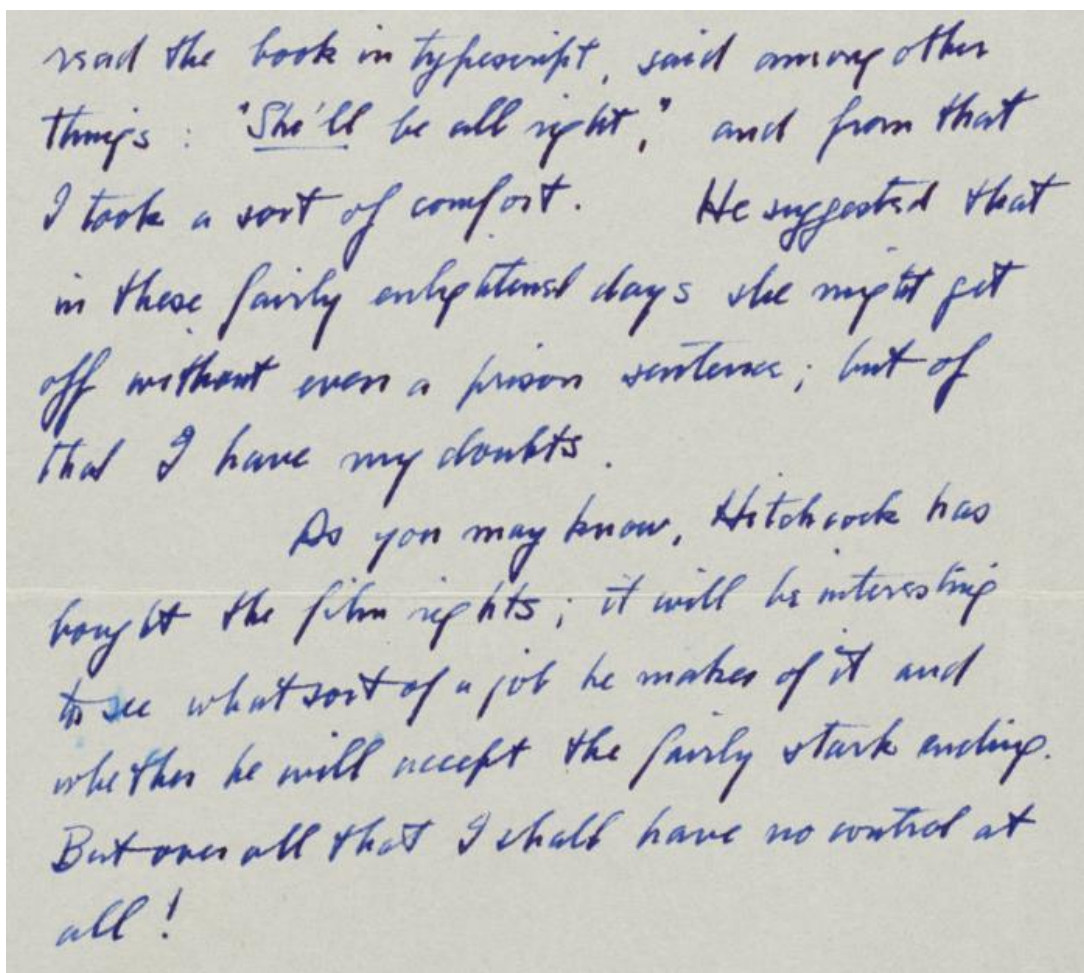 read the book in typescript, said among other
things: "She'll be all right," and from that
I took a sort of comfort. He suggested that
in these fairly enlightened days she might get
off without even a prison sentence; but of
that I have my doubts.
As you may know, Hitchcock has
bought the film rights; it will be interesting
to see what sort of a job he makes of it and
whether he will accept the fairly stark ending.
But over all that I shall have no control at
all!